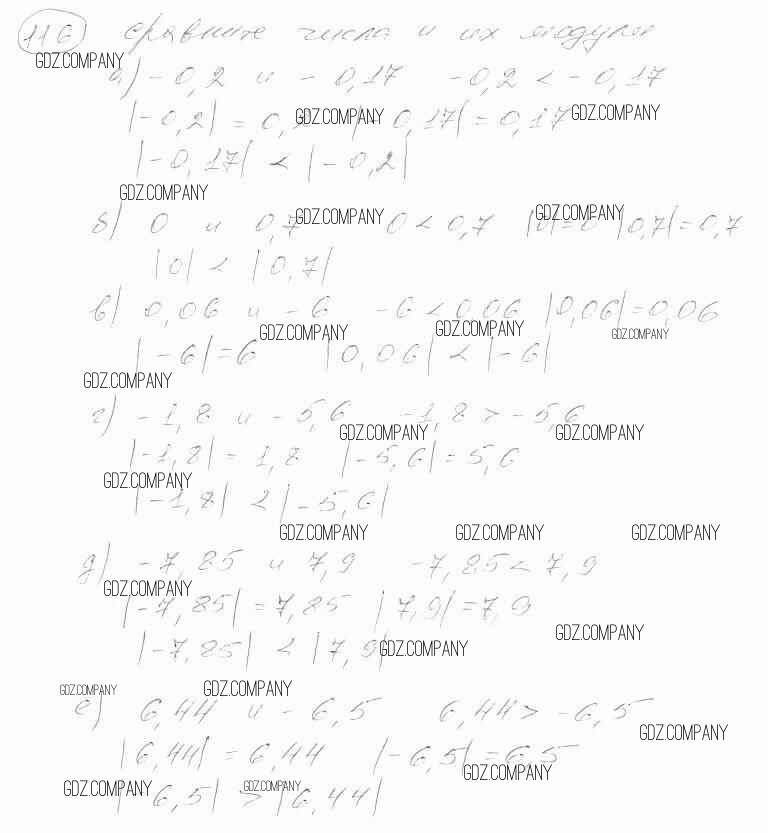 116 сравните числа и их модули
GDZ.COMPANY
а) -0,2 и -0,17 -0,2 < -0,17
|-0,2| = 0,2 |-0,17| = 0,17
GDZ.COMPANY GDZ.COMPANY
|-0,17| < |-0,2|
GDZ.COMPANY
б) 0 и 0,7 0 < 0,7 |0|=0 |0,7|=0,7
GDZ.COMPANY GDZ.COMPANY
|0| < |0,7|
в) 0,06 и -6 -6 < 0,06 |0,06|=0,06
GDZ.COMPANY GDZ.COMPANY GDZ.COMPANY
|-6|=6 |0,06| < |-6|
GDZ.COMPANY
г) -1,8 и -5,6 -1,8 > -5,6
GDZ.COMPANY GDZ.COMPANY
|-1,8| = 1,8 |-5,6| = 5,6
GDZ.COMPANY
|-1,8| < |-5,6|
GDZ.COMPANY GDZ.COMPANY GDZ.COMPANY
д) -7,85 и 7,9 -7,85 < 7,9
GDZ.COMPANY
|-7,85| = 7,85 |7,9| = 7,9
GDZ.COMPANY
|-7,85| < |7,9|
GDZ.COMPANY
GDZ.COMPANY GDZ.COMPANY
е) 6,44 и -6,5 6,44 > -6,5
GDZ.COMPANY
|6,44| = 6,44 |-6,5| = 6,5
GDZ.COMPANY
GDZ.COMPANY GDZ.COMPANY
|-6,5| > |6,44|